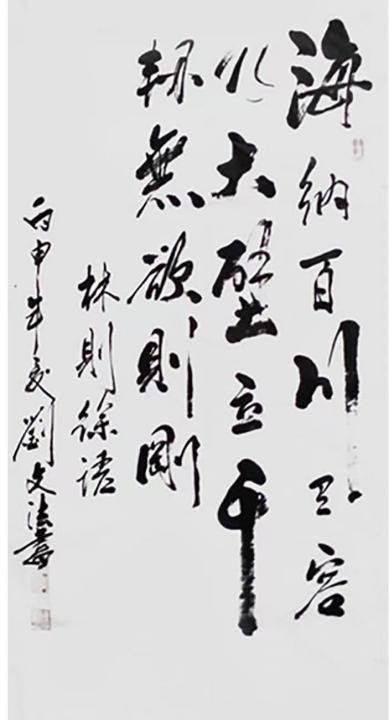 海納百川有容
乃大壁立千
軔無欲則剛
林則徐語
丙申年夏劉文法書